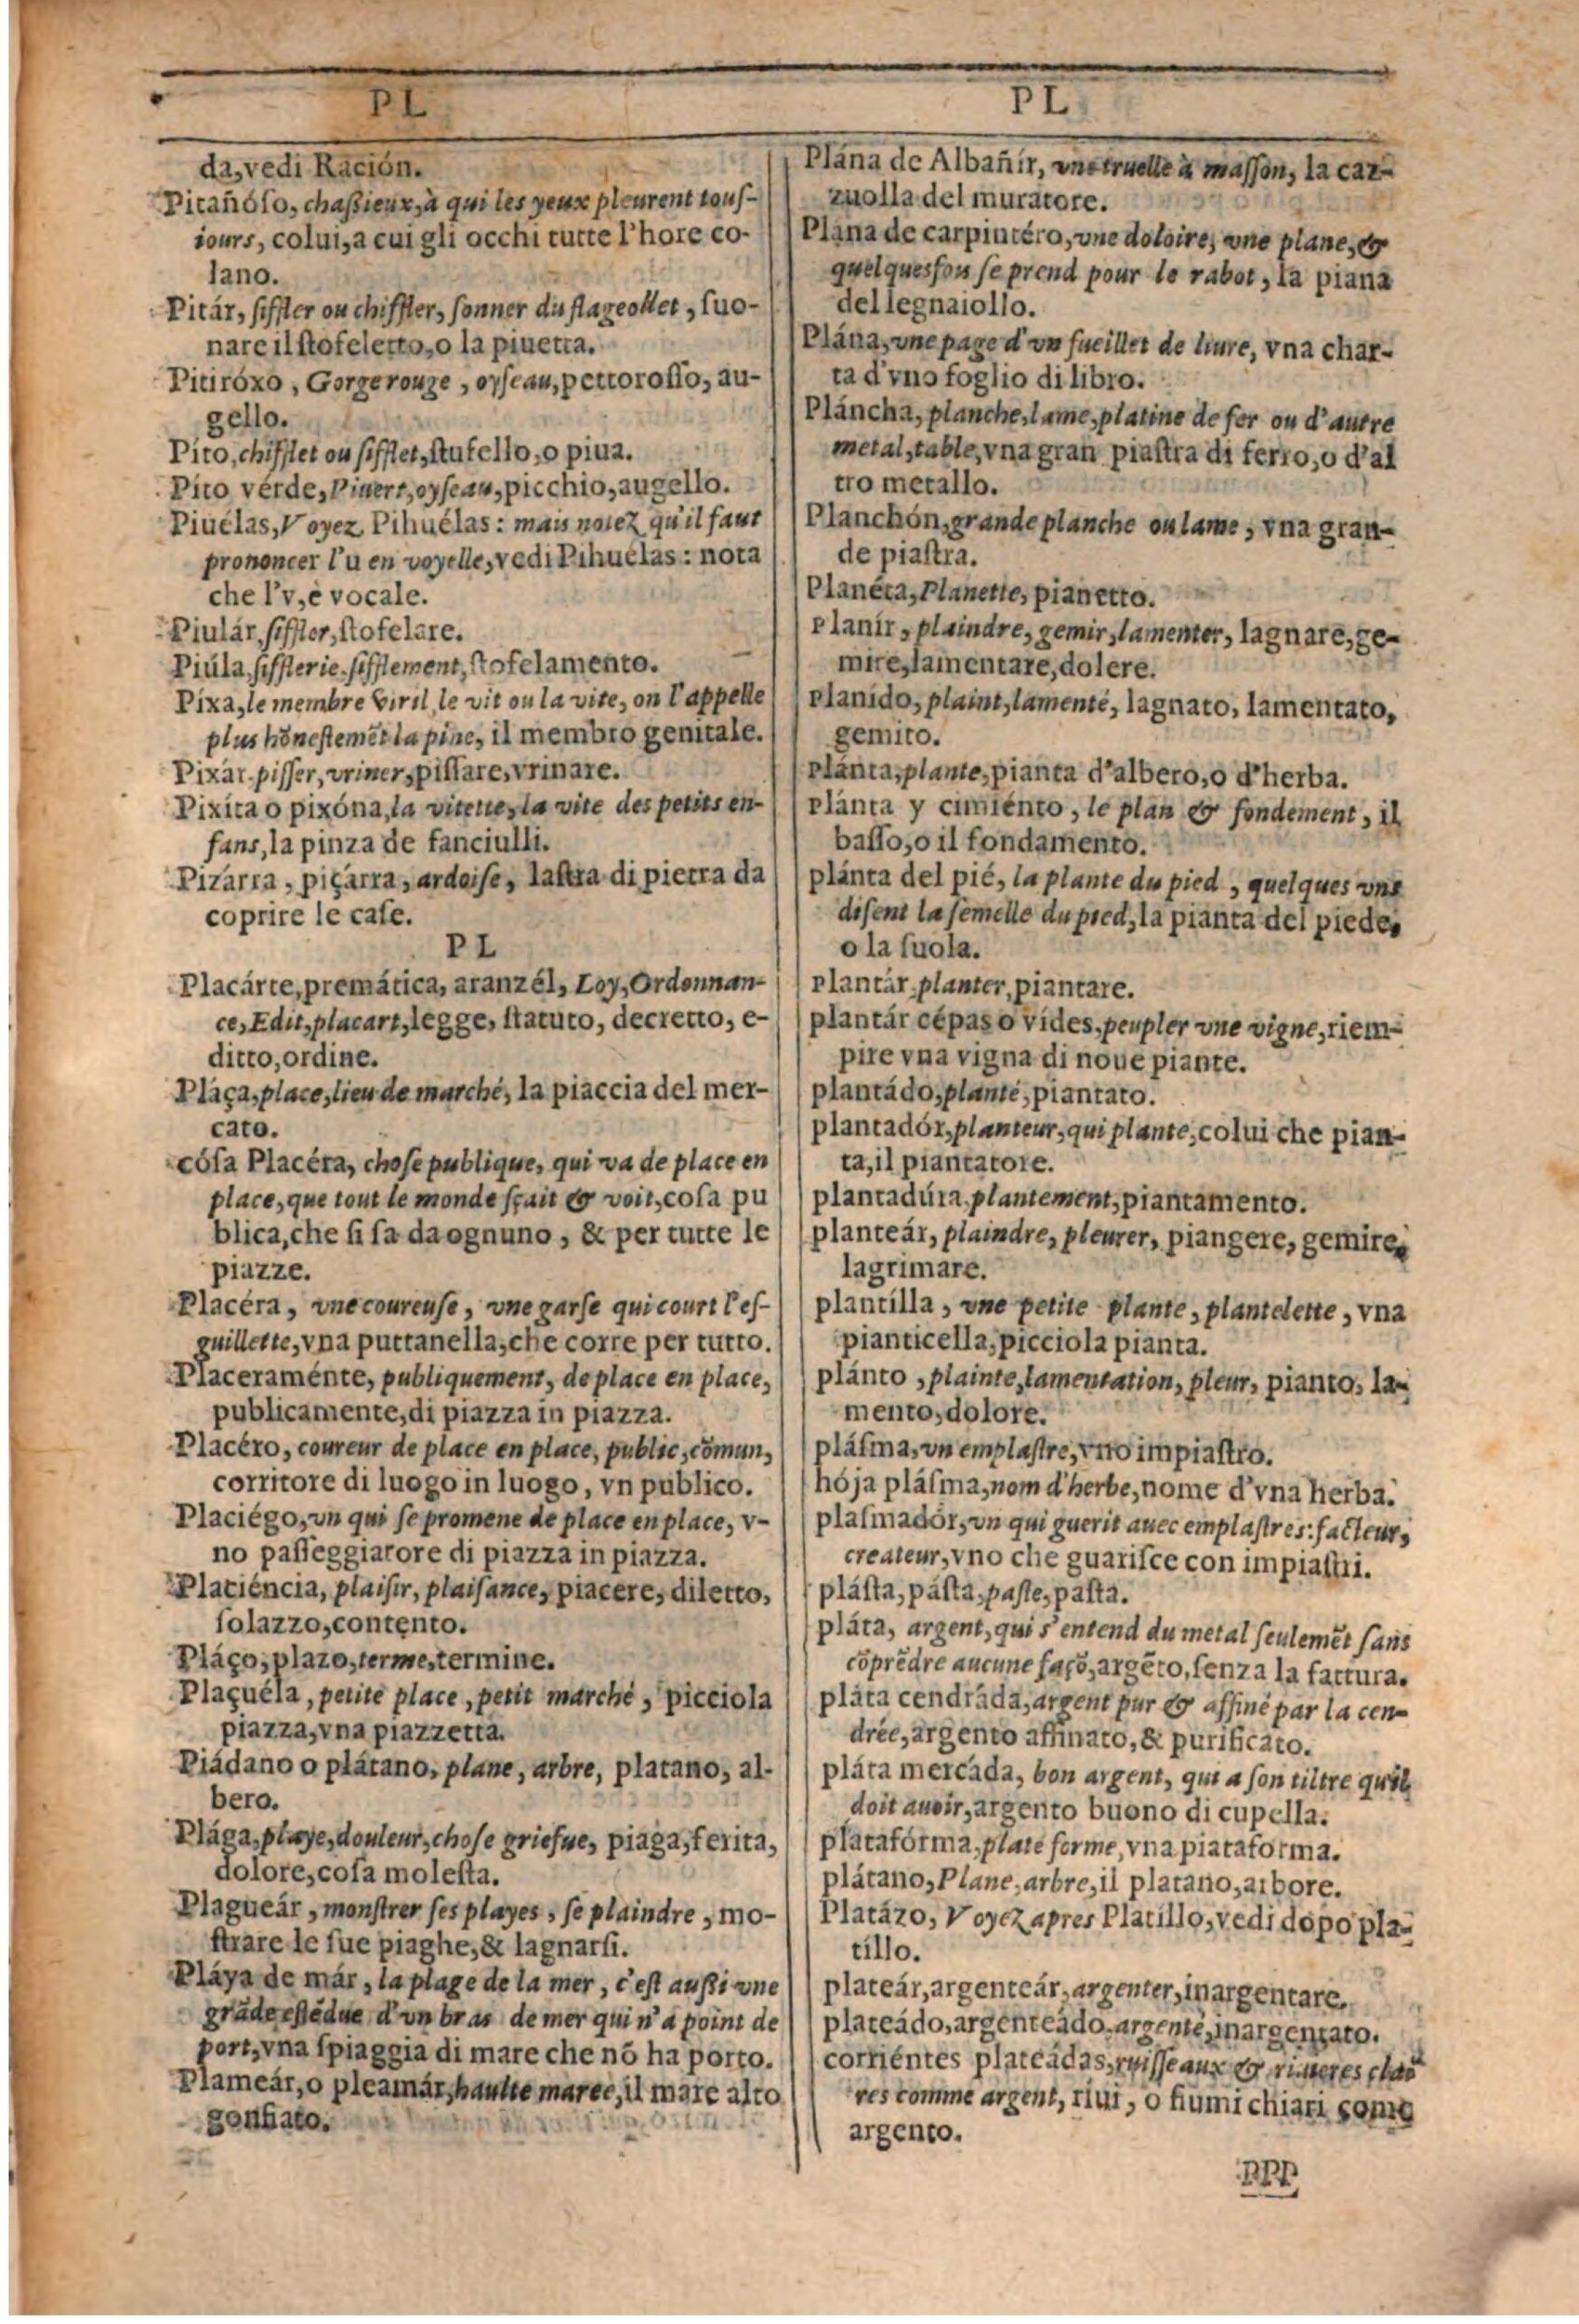 PL
da,vedi Ración.
Pitañóſo, chaßieux,à qui les yeux pleurent touſ-
iours, colui,a cui gli occhi tutte l'hore co-
lano.
Pitár, ſiffler ou chiffler, ſonner du flageollet, ſuo-
nare il ſtofeletto,o la piuetta.
Pitiróxo, Gorge rouge, oyſeau,pettoroſſo, au-
gello.
Pito,chifflet ou ſifflet,ſtufello,o piua.
Pito vérde,Piuert,oyſeau,picchio,augello.
Piuélas,Voyez Pihuélas: mais notez qu'il faut
prononcer l'u en voyelle,vedi Pihuélas: nota
che l'v,è vocale.
Piulár,ſiffler,ſtofelare.
Piúla,ſifflerie,ſifflement,ſtofelamento.
Píxa,le membre viril,le vit ou la vite, on l'appelle
plus hõneſtemẽt la pine, il membro genitale.
Pixár.piſſer,vriner,piſſare,vrinare.
Pixíta o pixóna,la vitette,la vite des petits en-
fans,la pinza de fanciulli.
Pizárra, piçárra, ardoiſe, laſtra di pietra da
coprire le caſe.
PL
Placárte,premática, aranzél, Loy,Ordonnan-
ce,Edit,placart,legge, ſtatuto, decretto, e-
ditto,ordine.
Pláça,place,lieu de marché, la piaccia del mer-
cato.
cóſa Placéra, choſe publique, qui va de place en
place,que tout le monde ſçait & voit,coſa pu
blica,che ſi ſa da ognuno, & per tutte le
piazze.
Placéra, vne coureuſe, vne garſe qui court l'eſ-
guillette,vna puttanella,che corre per tutto.
Placeraménte, publiquement, de place en place,
publicamente,di piazza in piazza.
Placéro, coureur de place en place, public,cõmun,
corritore di luogo in luogo, vn publico.
Placiégo,vn qui ſe promene de place en place, v-
no paſſeggiatore di piazza in piazza.
Platiéncia, plaiſir, plaiſance, piacere, diletto,
ſolazzo,contento.
Pláço,plazo,terme,termine.
Plaçuéla, petite place, petit marché, picciola
piazza,vna piazzetta.
Piádano o plátano, plane, arbre, platano, al-
bero.
Plága,playe,douleur,choſe griefue, piaga,ferita,
dolore,coſa moleſta.
Plagueár, monſtrer ſes playes, ſe plaindre, mo-
ſtrare le ſue piaghe,& lagnarſi.
Pláya de már, la plage de la mer, c'eſt außi vne
grãde eſtẽdue d'vn bras de mer qui n'a point de
port,vna ſpiaggia di mare che nõ ha porto.
Plameár,o pleamár,haulte maree,il mare alto
gonfiato.
PL
Plána de Albañír, vne truelle à maſſon, la caz-
zuolla del muratore.
Plána de carpintéro,vne doloire, vne plane,&
quelquesfois ſe prend pour le rabot, la piana
del legnaiollo.
Plána,vne page d'vn fueillet de liure, vna char-
ta d'vno foglio di libro.
Pláncha, planche,lame,platine de fer ou d'autre
metal,table,vna gran piaſtra di ferro,o d'al
tro metallo.
Planchón,grande planche ou lame, vna gran-
de piaſtra.
Planéta,Planette, pianetto.
Planír, plaindre, gemir,lamenter, lagnare,ge-
mire,lamentare,dolere.
Planído, plaint,lamenté, lagnato, lamentato,
gemito.
Plánta,plante,pianta d'albero,o d'herba.
Plánta y cimiénto, le plan & fondement, il
baſſo,o il fondamento.
plánta del pié, la plante du pied, quelques vns
diſent la ſemelle du pied,la pianta del piede,
o la ſuola.
Plantár,planter,piantare.
plantár cépas o vídes,peupler vne vigne,riem-
pire vna vigna di noue piante.
plantádo,planté,piantato.
plantadór,planteur,qui plante,colui che pian-
ta,il piantatore.
plantadúra,plantement,piantamento.
planteár, plaindre, pleurer, piangere, gemire,
lagrimare.
plantílla, vne petite plante, plantelette, vna
pianticella,picciola pianta.
plánto, plainte,lamentation, pleur, pianto, la-
mento,dolore.
pláſma,vn emplaſtre,vno impiaſtro.
hója pláſma,nom d'herbe,nome d'vna herba.
plaſmadór,vn qui guerit auec emplaſtres:facteur,
createur,vno che guariſce con impiaſtri.
pláſta,páſta,paſte,paſta.
pláta, argent,qui s'entend du metal ſeulemẽt ſans
cõprẽdre aucune façõ,argẽto,ſenza la fattura.
pláta cendráda,argent pur & affiné par la cen-
drée,argento affinato,& purificato.
pláta mercáda, bon argent, qui a ſon tiltre qu'il
doit auoir,argento buono di cupella.
platafórma,plate forme,vna piataforma.
plátano,Plane,arbre,il platano,arbore.
Platázo, Voyez apres Platillo,vedi dopo pla-
tillo.
plateár,argenteár,argenter,inargentare.
plateádo,argenteádo,argenté,inargentato.
corriéntes plateádas,ruiſſeaux & riuieres clai-
res comme argent, riui, o fiumi chiari como
argento.
PPP